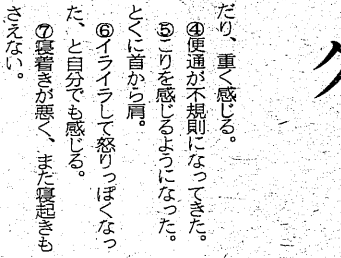 だり、重く感じる。
④便通が不規則になってきた。
⑤こりを感じるようになった。
とくに首から肩。
⑥イライラして怒りっぽくなっ
た、と自分でも感じる。
⑦寝着きが悪く、また寝起きも
さえない。